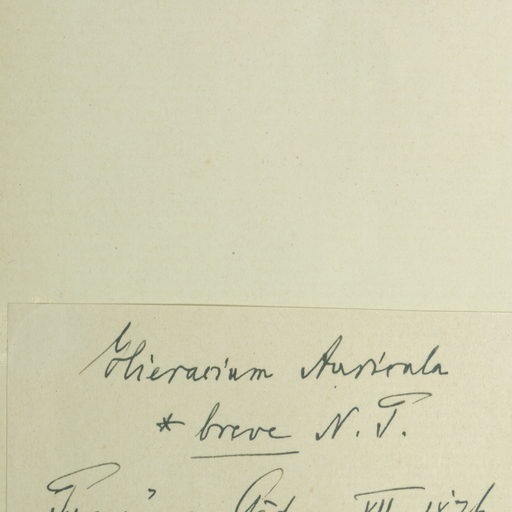 Hieracium Auricula
* breve N. P.
XII